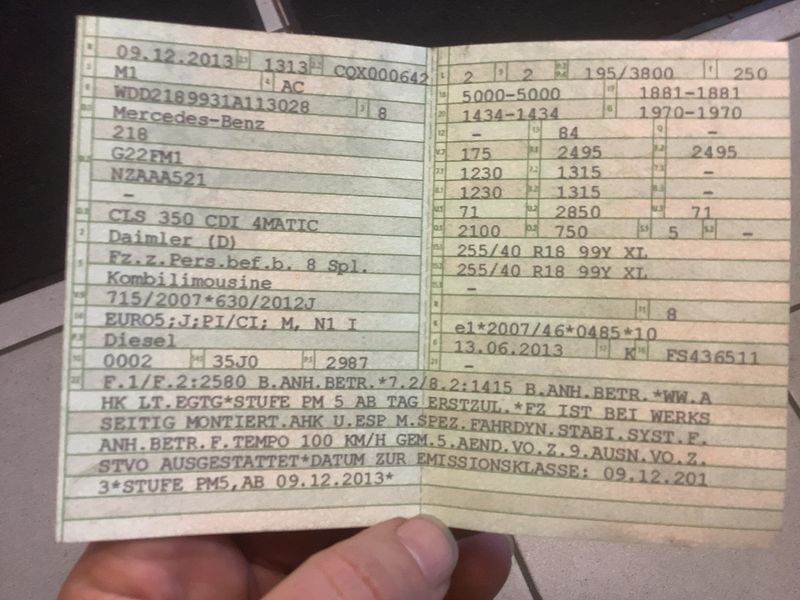 09.12.2013 1313 CQX000642
M1 AC
WDD2189931A113028 8
Mercedes-Benz
218
G22FM1
NZAAA521
–
CLS 350 CDI 4MATIC
Daimler (D)
Fz.z.Pers.bef.b. 8 Spl.
Kombilimousine
715/2007*630/2012J
EURO5;J;PI/CI; M, N1 I
Diesel
0002 35J0 2987
2 2 195/3800 250
5000-5000 1881-1881
1434-1434 1970-1970
– 84 –
175 2495 2495
1230 1315 –
1230 1315 –
71 2850 71
2100 750 5 –
255/40 R18 99Y XL
255/40 R18 99Y XL
–
8
e1*2007/46*0485*10
13.06.2013 K FS436511
–
F.1/F.2:2580 B.ANH.BETR.*7.2/8.2:1415 B.ANH.BETR.*WW.A
HK LT.EGTG*STUFE PM 5 AB TAG ERSTZUL.*FZ IST BEI WERKS
SEITIG MONTIERT.AHK U.ESP M.SPEZ.FAHRDYN.STABI.SYST.F.
ANH.BETR.F.TEMPO 100 KM/H GEM.5.AEND.VO.Z.9.AUSN.VO.Z.
STVO AUSGESTATTET*DATUM ZUR EMISSIONSKLASSE: 09.12.201
3*STUFE PM5,AB 09.12.2013*